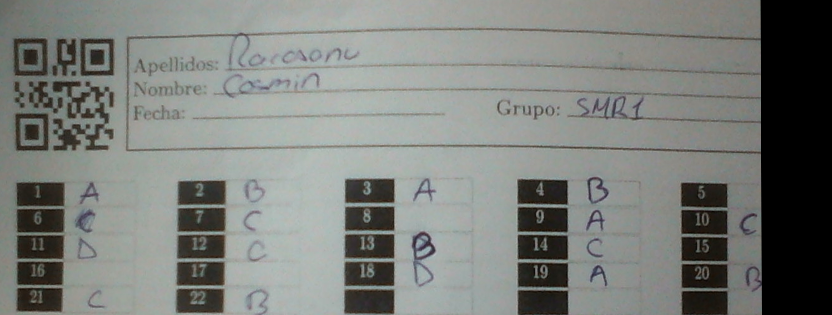 Apellidos: Racasanu
Nombre: Cosmin
Fecha:
Grupo: SMR1
1 A 2 B 3 A 4 B 5
6 C 7 C 8 9 A 10 C
11 D 12 C 13 B 14 C 15
16 17 18 D 19 A 20 B
21 C 22 B